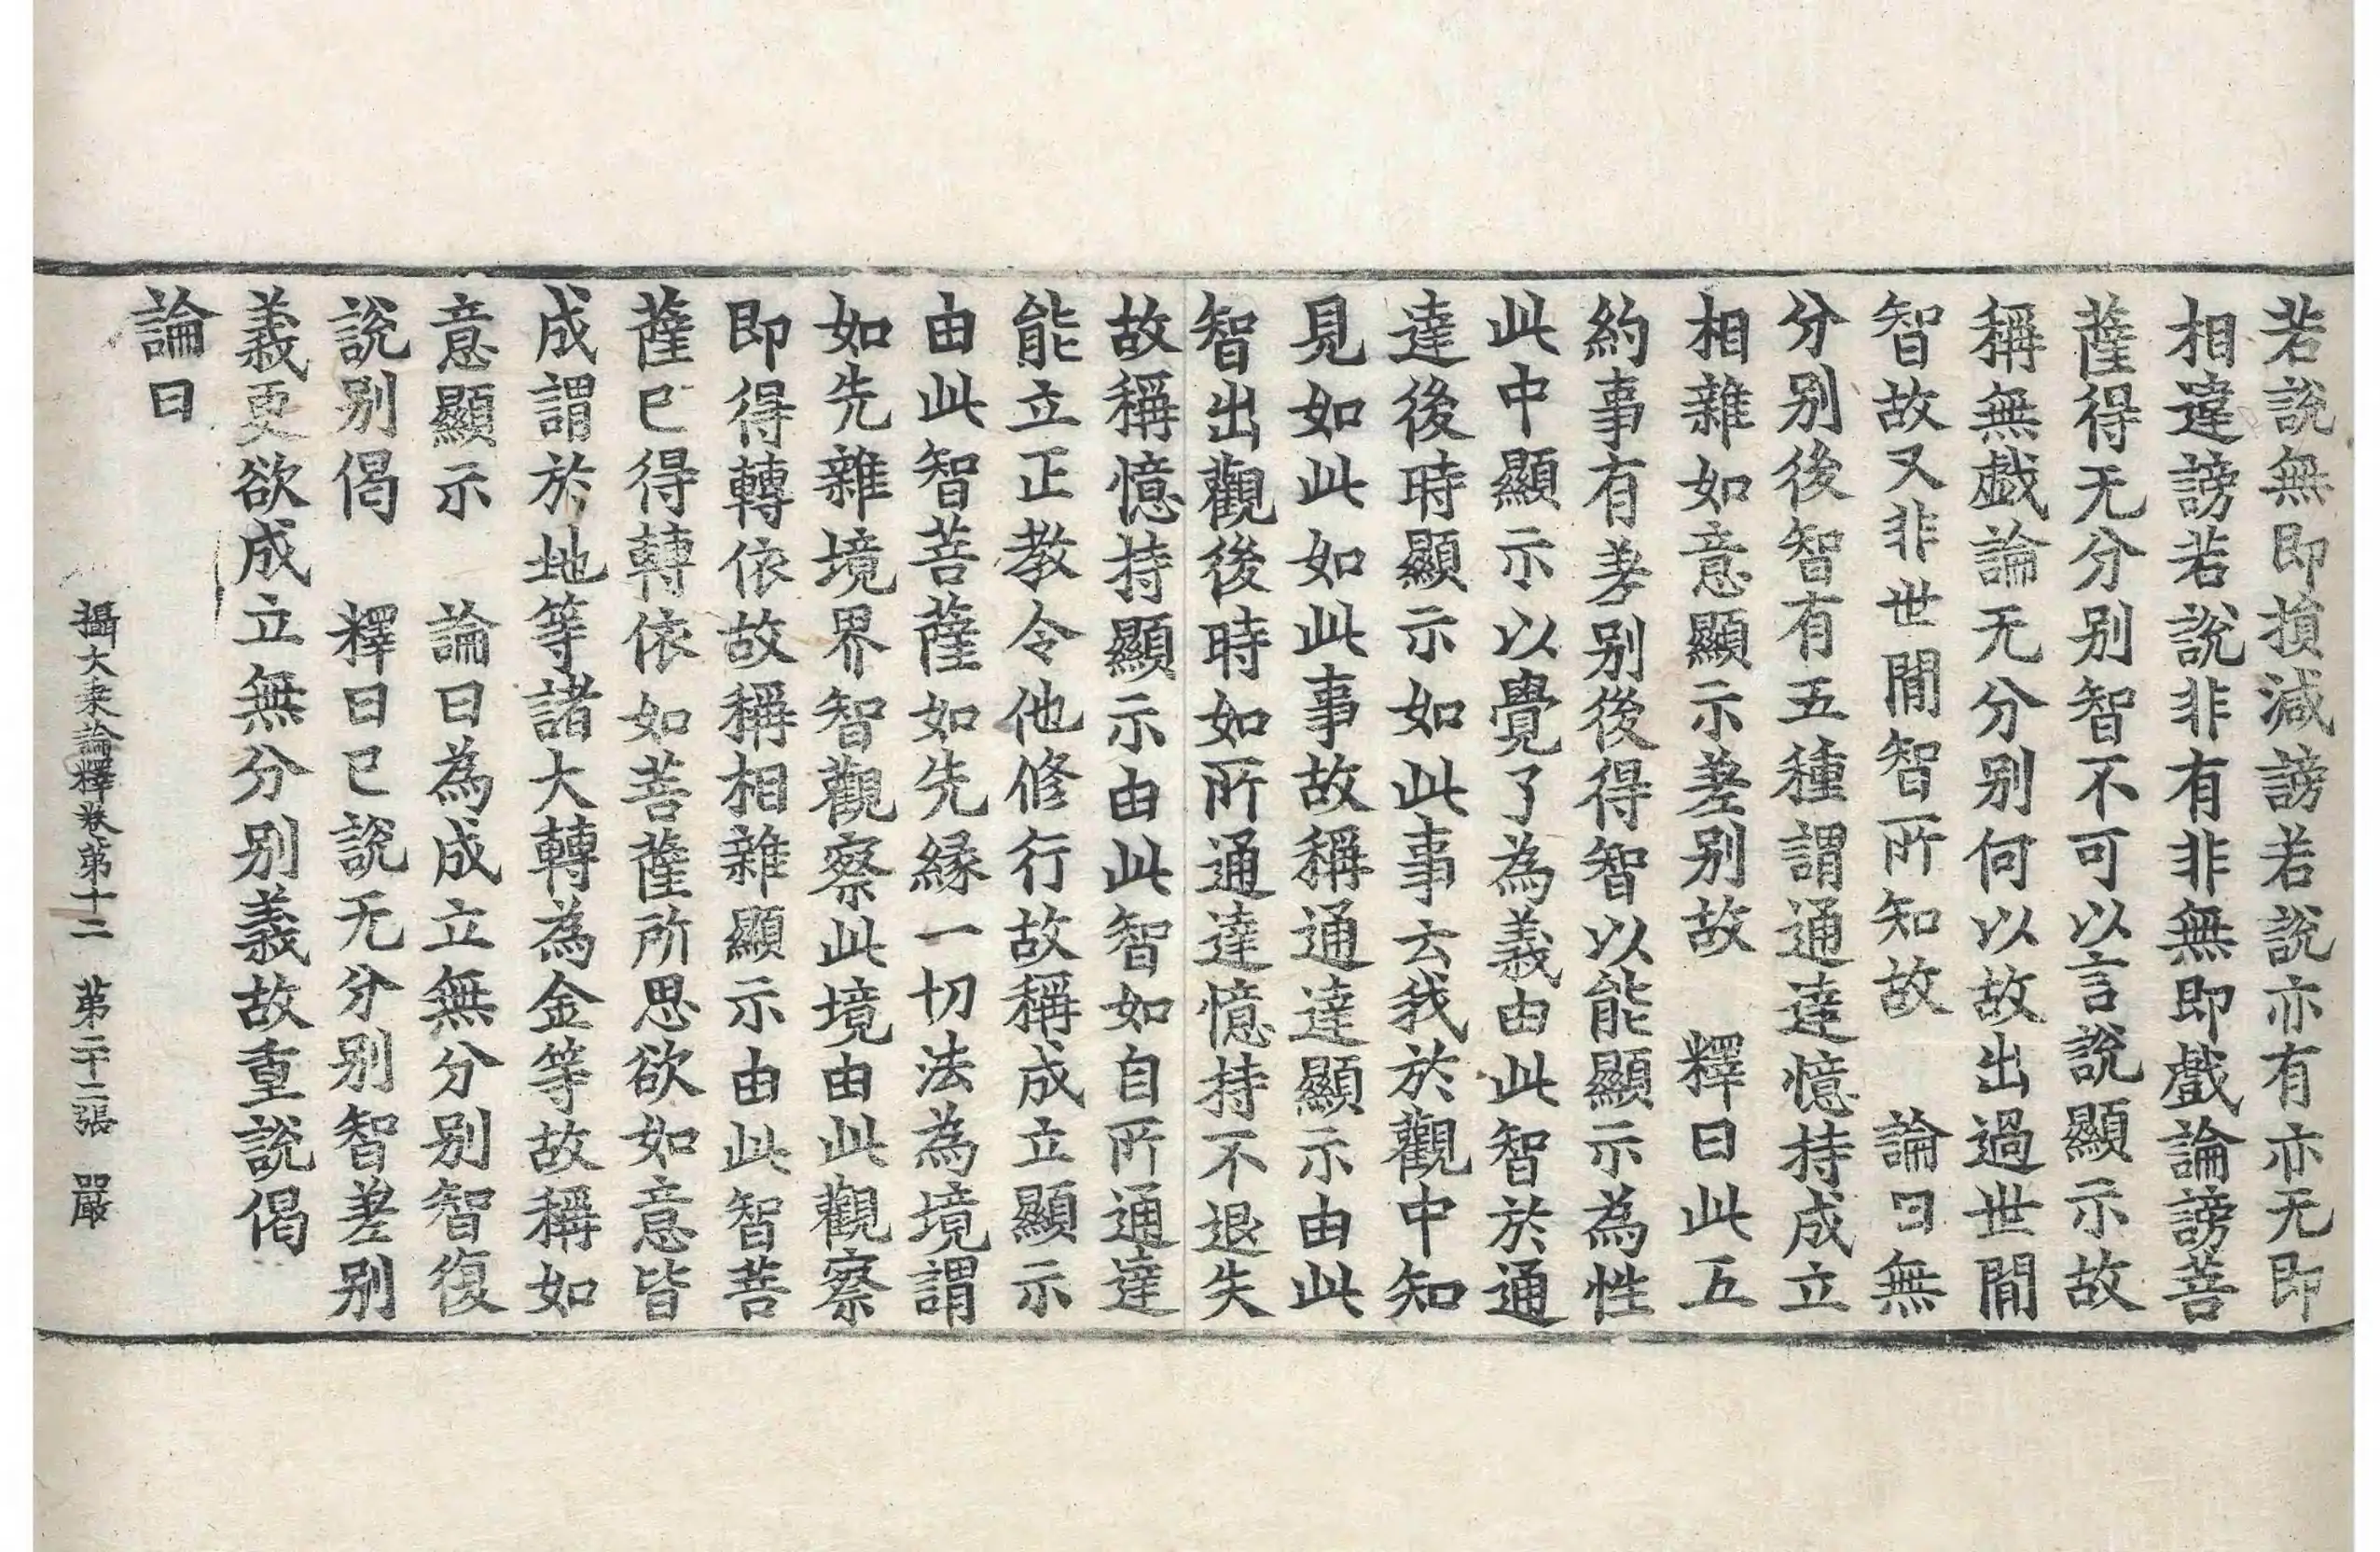 若說無即損減謗若說亦有亦无即
相違謗若說非有非無即戲論謗菩
薩得无分别智不可以言說顯示故
稱無戲論无分别何以故出過世間
智故又非世間智所知故　論曰無
分别後智有五種謂通達憶持成立
相雜如意顯示差别故　釋曰此五
約事有差别後得智以能顯示為性
此中顯示以覺了為義由此智於通
達後時顯示如此事云我於觀中知
見如此如此事故稱通達顯示由此
智出觀後時如所通達憶持不退失
故稱憶持顯示由此智如自所通達
能立正教令他修行故稱成立顯示
由此智菩薩如先縁一切法為境謂
如先雜境界智觀察此境由此觀察
即得轉依故稱相雜顯示由此智菩
薩已得轉依如菩薩所思欲如意皆
成謂於地等諸大轉為金等故稱如
意顯示　論曰為成立無分别智復
說别偈　釋曰已說无分别智差别
義更欲成立無分别義故重說偈
論曰
攝大乘論釋卷第十二　第二十二張　嚴